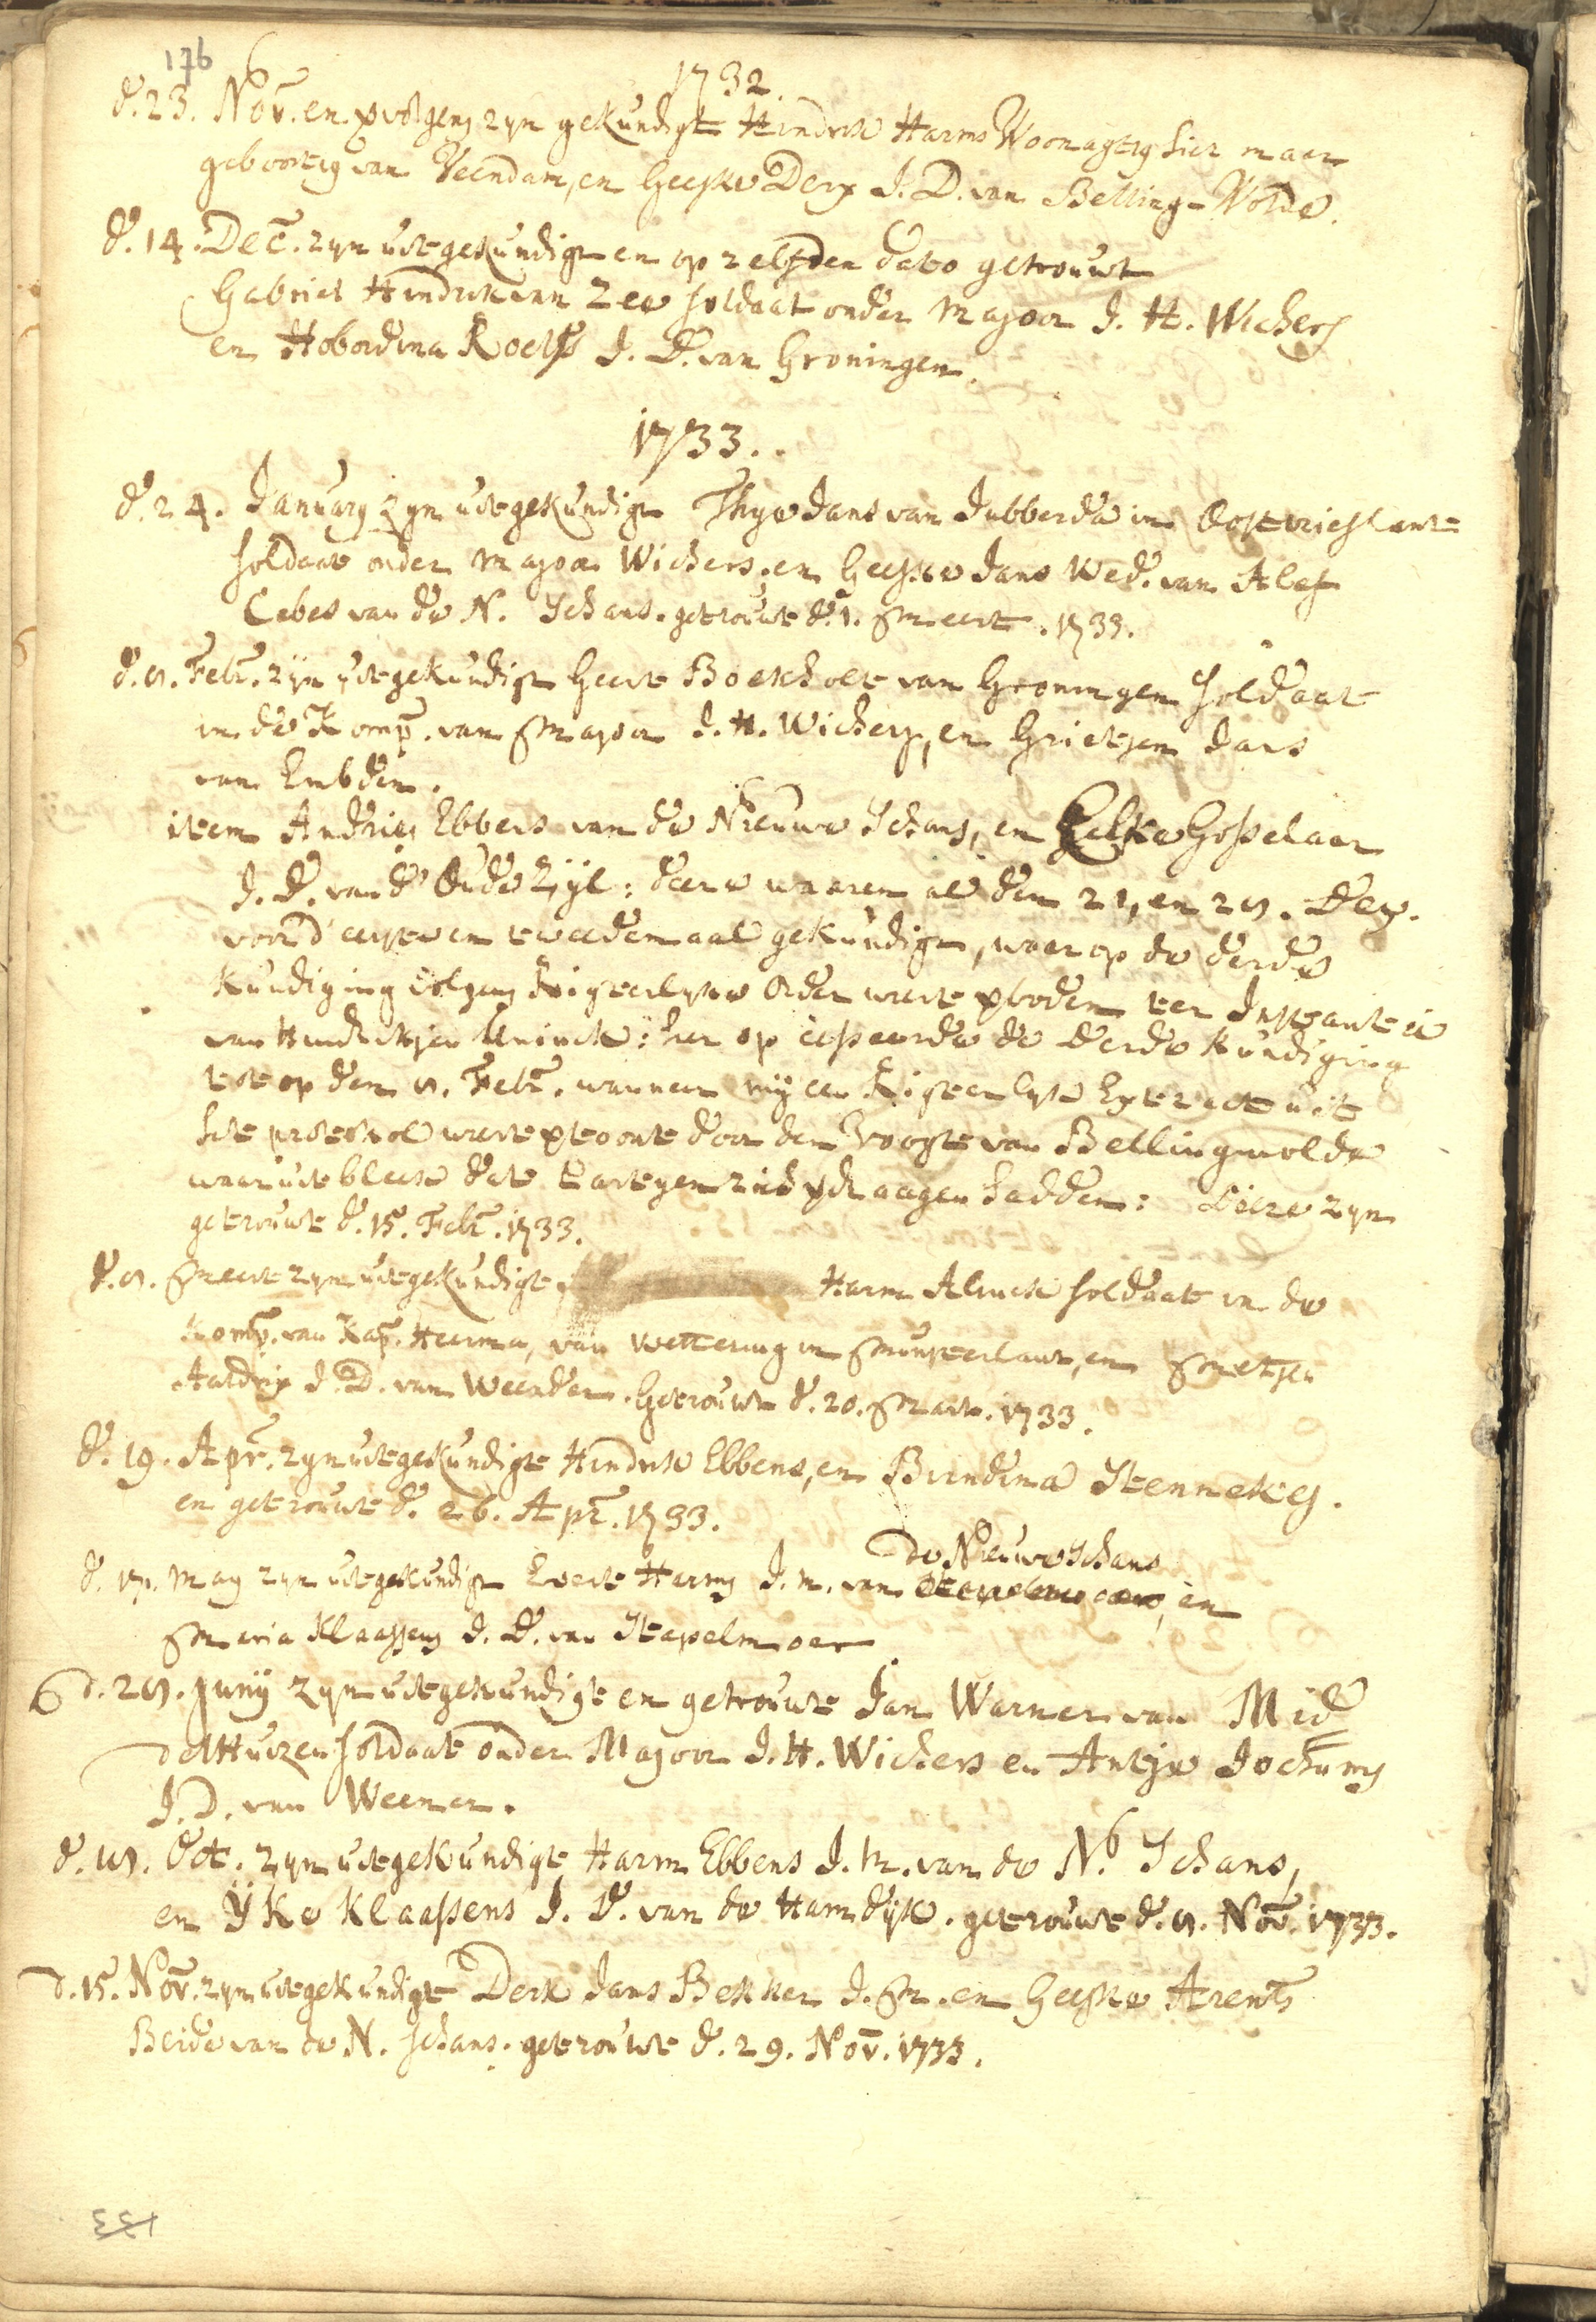 176
1732.
d. 23. Nov. en vervolgens zyn gekundigt Hindrik Harms Woonagtig hier maar
geboortig van Veendam, en Geeske Derx J. D. van Belling-Wolde.
d. 14. Dec. zyn uitgekundigt en op zelfden dato getrouwt
Gabriel Hindrik van Zee soldaat onder Majoor J. H. Wichers
en Hobordina Roelfs J. D. van Groningen.
1733..
d. 24. January zyn uitgekundigt Thys Jans van Jubberda in Oostvrieslant
soldaat onder Majoor Wichers, en Geeske Jans Wed. van Alef
Eebes van de N. Schans. getrouwt d. 1. Meert. 1733.
d. 8. Febr. zyn uitgekundigt Geert Boekholt van Groningen soldaat
in de Komp. van Majoor J. H. Wichers, en Grietjen Jans
van Embden.
item Andries Ebbers van de Nieuwe Schans, en Eelke Gosselaar
J. D. van d' Oude Zyl: deeze waaren al den 21, en 28. Dec.
voor d' eerste en tweedemaal gekundigt, waar op de derde
kundiging volgens Rigterlyke Order wert verboden ter Instantie
van Hindrikjen Unink: hier op cesseerde de derde kundiging
tot op den 8. Febr. wanneer my een Rigterlyk Extract uit
het protokol wert vertoont door den Voogt van Bellingwolde
waar uit bleek dat Partyen zich verdraagen hadden: Deeze zyn
getrouwt d. 15. Febr. 1733.
d. 8. Meert zyn uitgekundigt, Harm Alink soldaat in de
Komp. van Kap. Heerma, van Wettering in Munsterlant, en Metjen
Aaldrix J. D. van Weender. Getrouwt d. 20. Mart. 1733.
d. 19. Apr. zyn uitgekundigt Hindrik Ebbens, en Bundina Stennekes.
en getrouwt d. 26. Apr. 1733.
de Nieuwe Schans
d. 17. May zyn uitgekundigt Evert Harms J. M. van Stapelmoer, en
Maria Klaassens J. D. van Stapelmoer
d. 28. Juny zyn uitgekundigt en getrouwt Jan Warner van Mid
delHuizen soldaat onder Majoor J. H. Wichers en Antje Jochums
J. D. van Weener.
d. 18. Oct. zyn uitgekundigt Harm Ebbens J. M. van de N. Schans,
en Yke Klaassens J. D. van de Hamdyk. getrouwt d. 8. Nov. 1733.
d. 15. Nov. zyn uitgekundigt Derk Jans Bekker J. M. en Geeske Arents
Beide van de N. Schans. getrouwt d. 29. Nov. 1733.